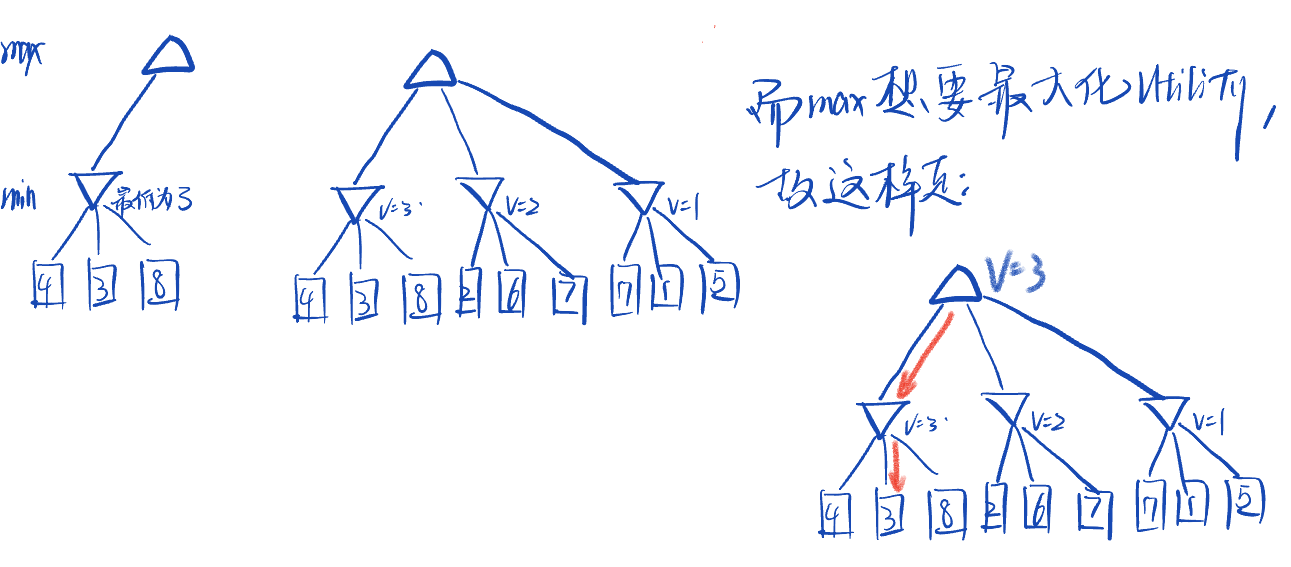 max
min
最低为3
4 3 8
V=3
V=2
V=1
4 3 8 2 6 7 7 1 5
而max想要最大化Utility,
故这样走:
V=3
V=3
V=2
V=1
4 3 8 2 6 7 7 1 5